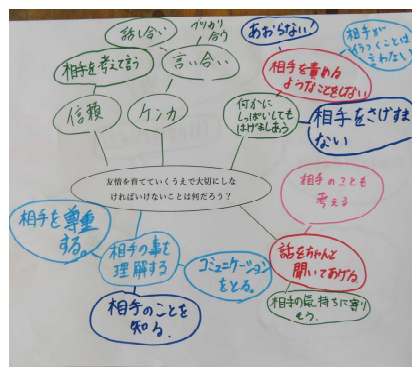 話し合い
ブツカリ
合う
あおらない!
相手が
傷つくことは
言わない
相手を考えて言う
言い合い
相手を責める
ようなことをしない
信頼
ケンカ
何かに
しっぱいしても
はげましあう
相手をさげすま
ない
友情を育てていくうえで大切にしな
ければいけないことは何だろう?
相手のことも
考える
相手を尊重
する。
相手の事を
理解する
コミュニケーション
をとる。
話をちゃんと
聞いてあげる。
相手のことを
知る。
相手の気持ちに寄り
そう。